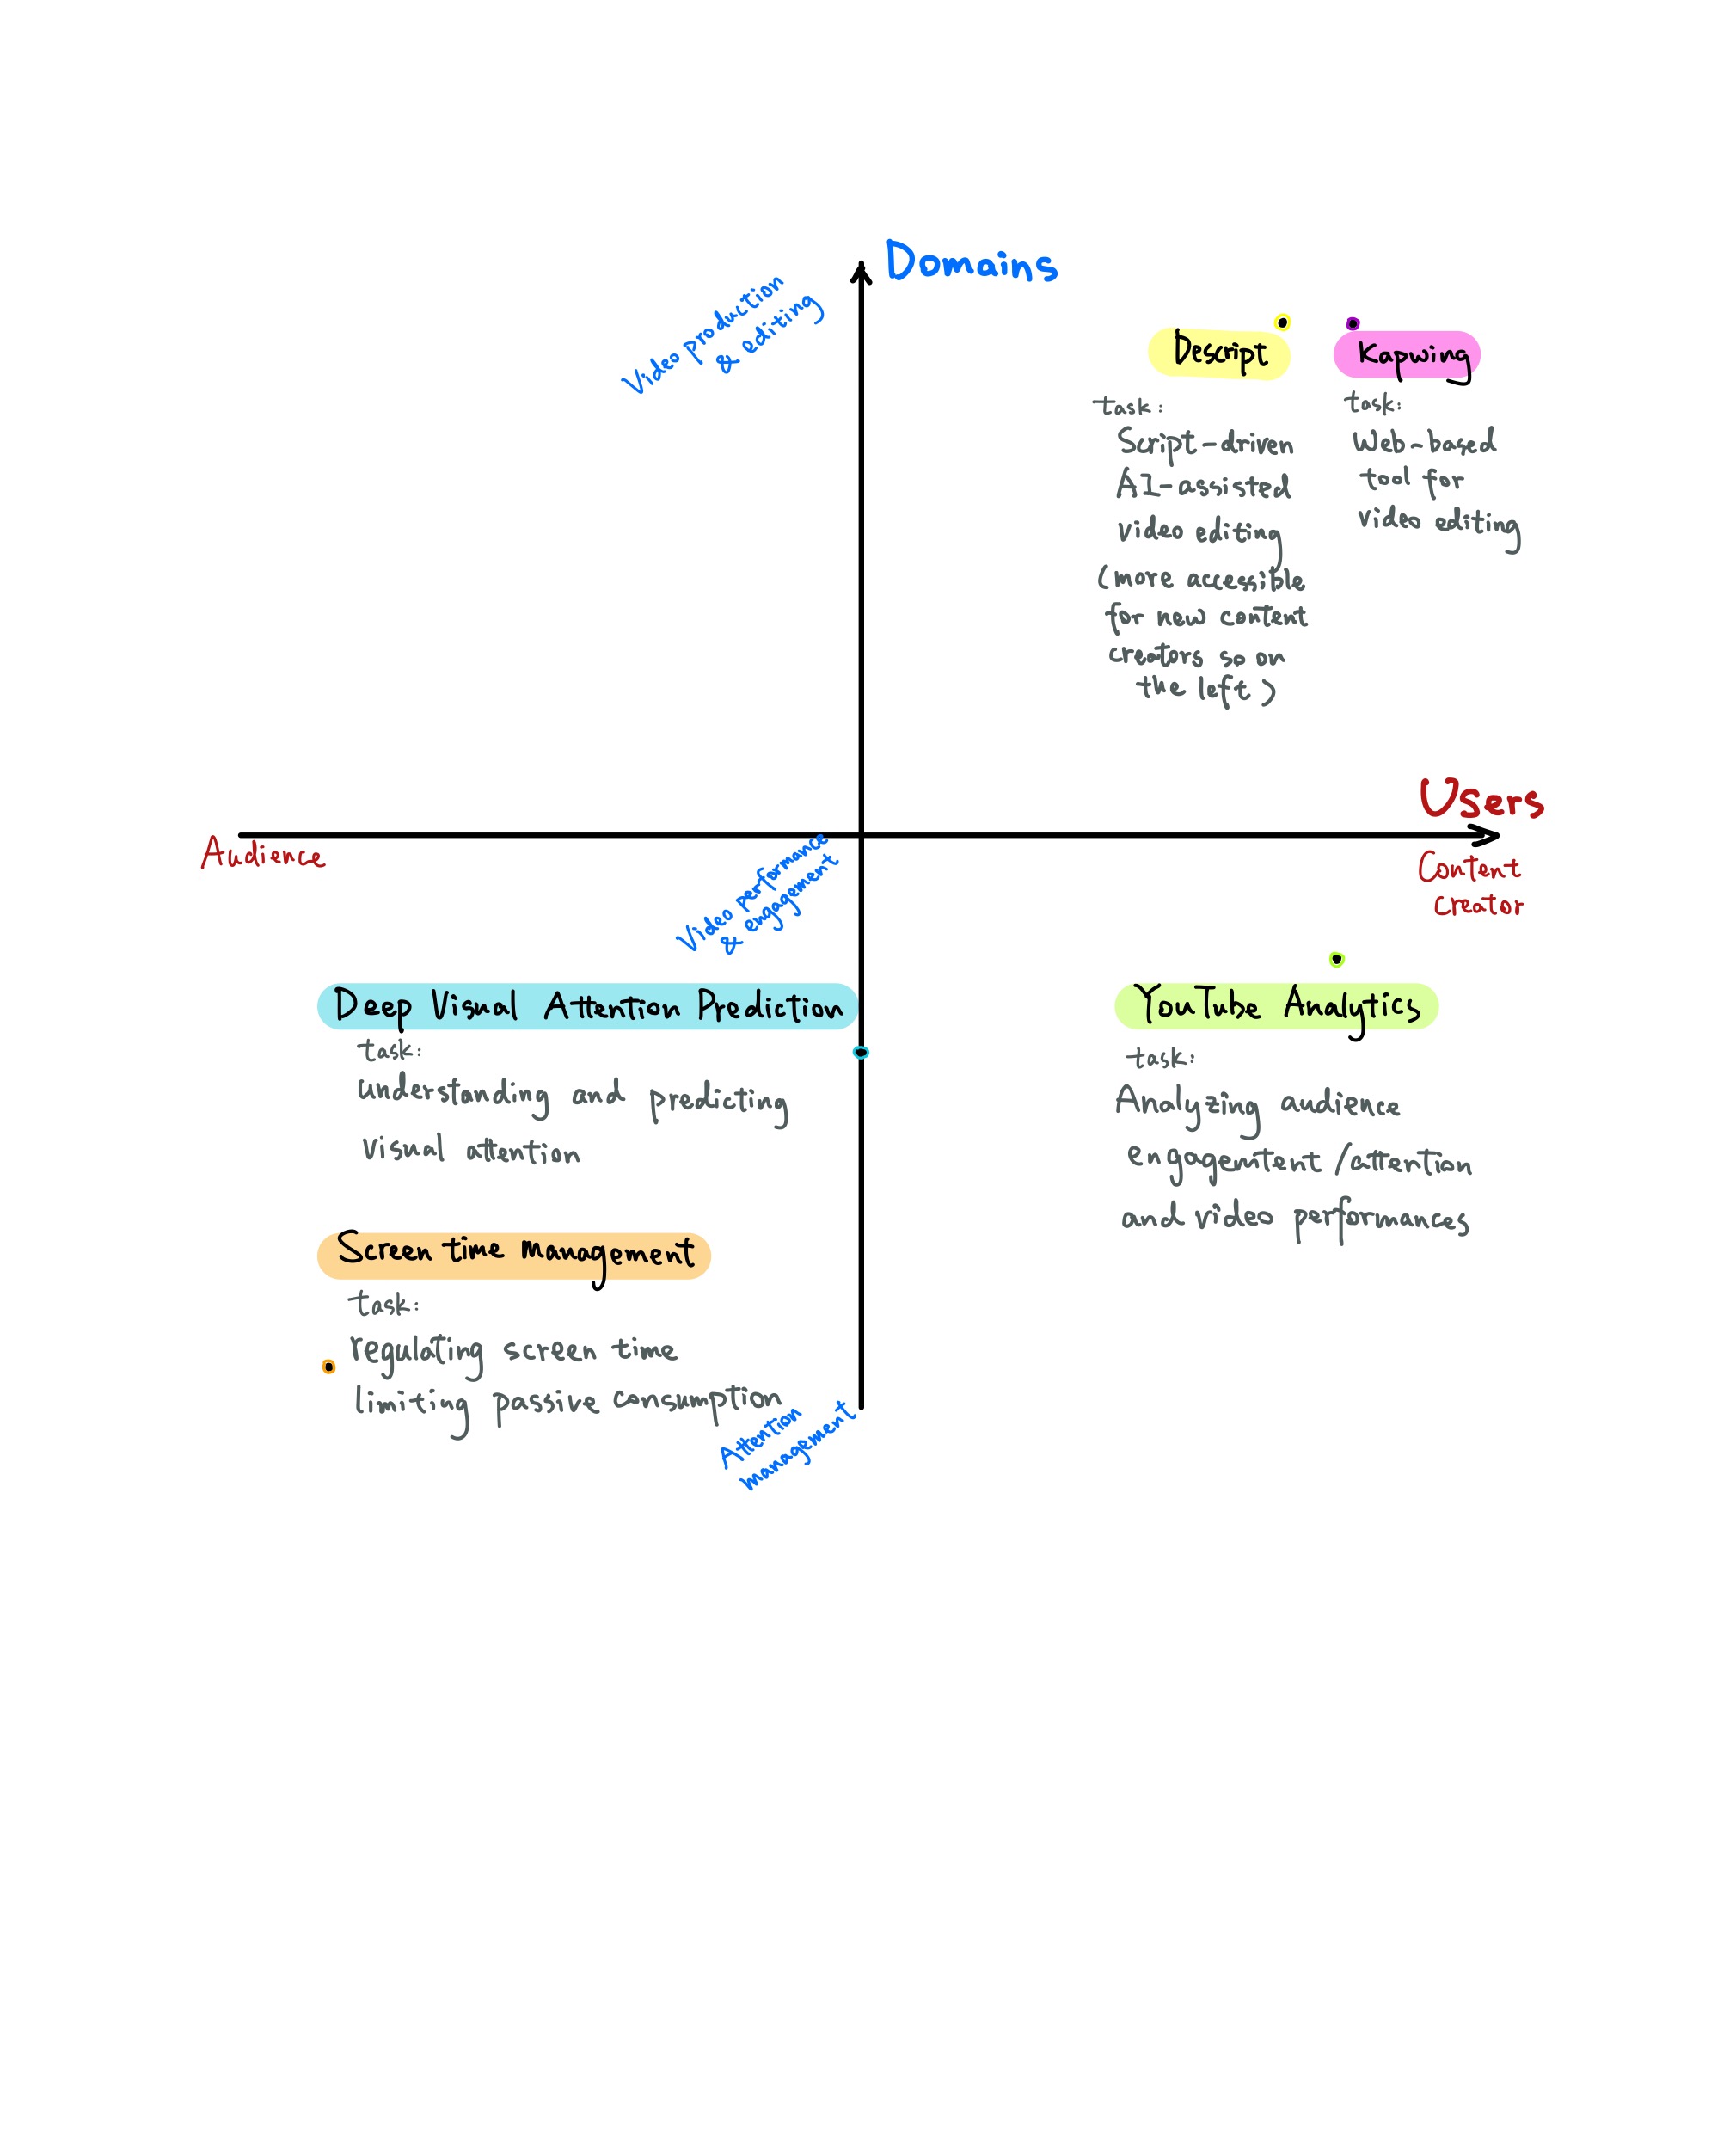 Domains
Video production
& editing
Descript
task:
Script-driven
AI-assisted
video editing
(more accessible
for new content
creators so on
the left)
Kapwing
task:
Web-based
tool for
video editing
Users
Audience
Content
creator
Video performance
& engagement
Deep Visual Attention Prediction
task:
understanding and predicting
visual attention
YouTube Analytics
task:
Analyzing audience
engagemtent/attention
and video performances
Screen time management
task:
regulating screen time
limiting passive consumption
Attention
management